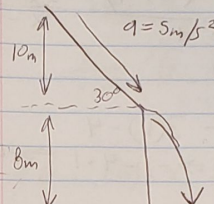 a = 5m/s²
10m
30°
8m